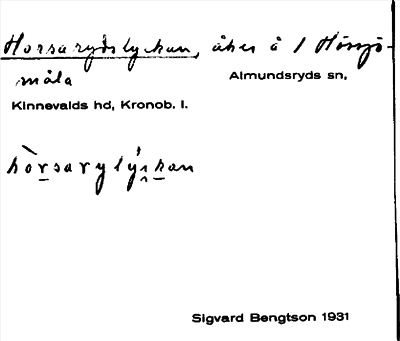 Horsarydslyckan, åker å 1 Hörsjö-
måla
Almundsryds sn,
Kinnevalds hd, Kronob. l.
hòrsarylýckan
Sigvard Bengtson 1931